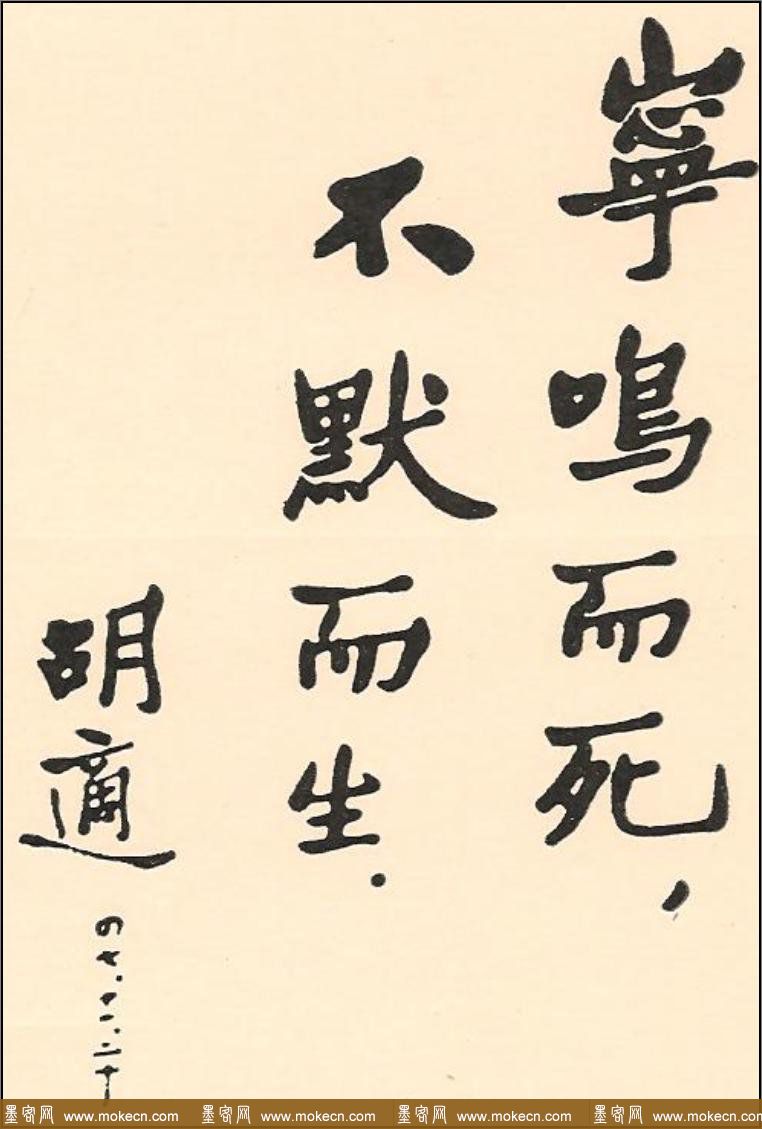 寧鳴而死，
不默而生．
胡適
四七．十一．二十
墨客网 www.mokecn.com 墨客网 www.mokecn.com 墨客网 www.mokecn.com 墨客网 www.mokecn.com